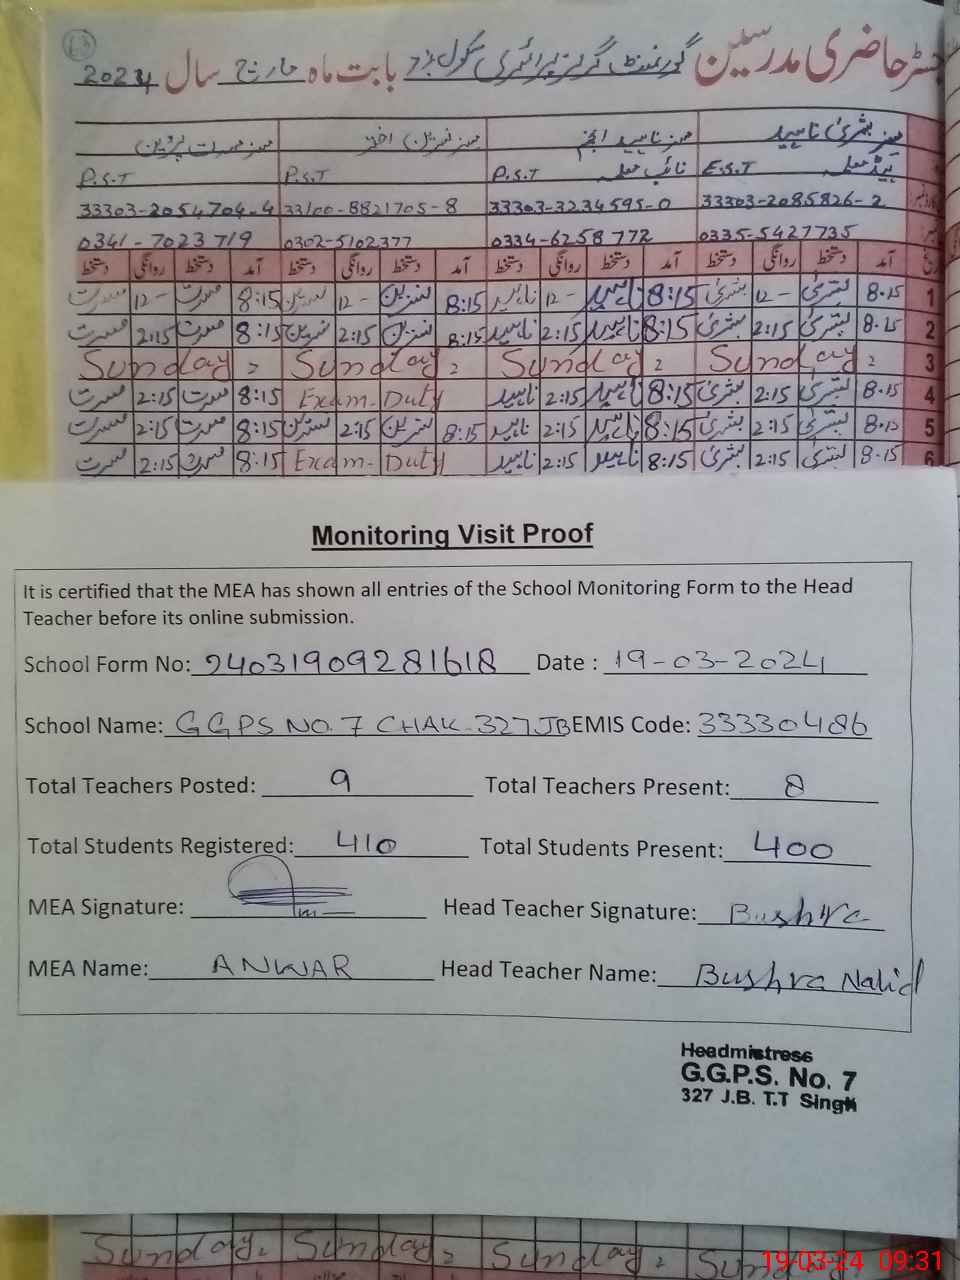 رجسٹر حاضری مدرسین گورنمنٹ گرلز پرائمری سکول نمبر 7 بابت ماہ مارچ سال 2024
مسز بشریٰ ناہید مسز ناہید انجم مسز نسرین اختر مسز مسرت پروین
ہیڈ معلمہ E.S.T نائب معلمہ P.S.T P.S.T P.S.T
33303-2085826-2 33303-3234595-0 33100-8821705-8 33303-2054704-4
0335-5427735 0334-6258772 0302-5102377 0341-7023719
آمد دستخط روانگی دستخط آمد دستخط روانگی دستخط آمد دستخط روانگی دستخط آمد دستخط روانگی دستخط
1 8:15 بشریٰ 12- بشریٰ 8:15 ناہید 12- ناہید 8:15 نسرین 12- نسرین 8:15 مسرت 12- مسرت
2 8:15 بشریٰ 2:15 بشریٰ 8:15 ناہید 2:15 ناہید 8:15 نسرین 2:15 نسرین 8:15 مسرت 2:15 مسرت
3 Sunday Sunday Sunday Sunday
4 8:15 بشریٰ 2:15 بشریٰ 8:15 ناہید 2:15 ناہید Exam-Duty 8:15 مسرت 2:15 مسرت
5 8:15 بشریٰ 2:15 بشریٰ 8:15 ناہید 2:15 ناہید 8:15 نسرین 2:15 نسرین 8:15 مسرت 2:15 مسرت
6 8:15 بشریٰ 2:15 بشریٰ 8:15 ناہید 2:15 ناہید Exam-Duty 8:15 مسرت 2:15 مسرت
Monitoring Visit Proof
It is certified that the MEA has shown all entries of the School Monitoring Form to the Head
Teacher before its online submission.
School Form No: 24031909281618 Date : 19-03-2024
School Name: GGPS NO. 7 CHAK. 327JB EMIS Code: 33330486
Total Teachers Posted: 9 Total Teachers Present: 8
Total Students Registered: 410 Total Students Present: 400
MEA Signature: Head Teacher Signature: Bushra
MEA Name: ANWAR Head Teacher Name: Bushra Nahid
Headmistress
G.G.P.S. No. 7
327 J.B. T.T Singh
Sunday Sunday Sunday Sunday
19-03-24 09:31